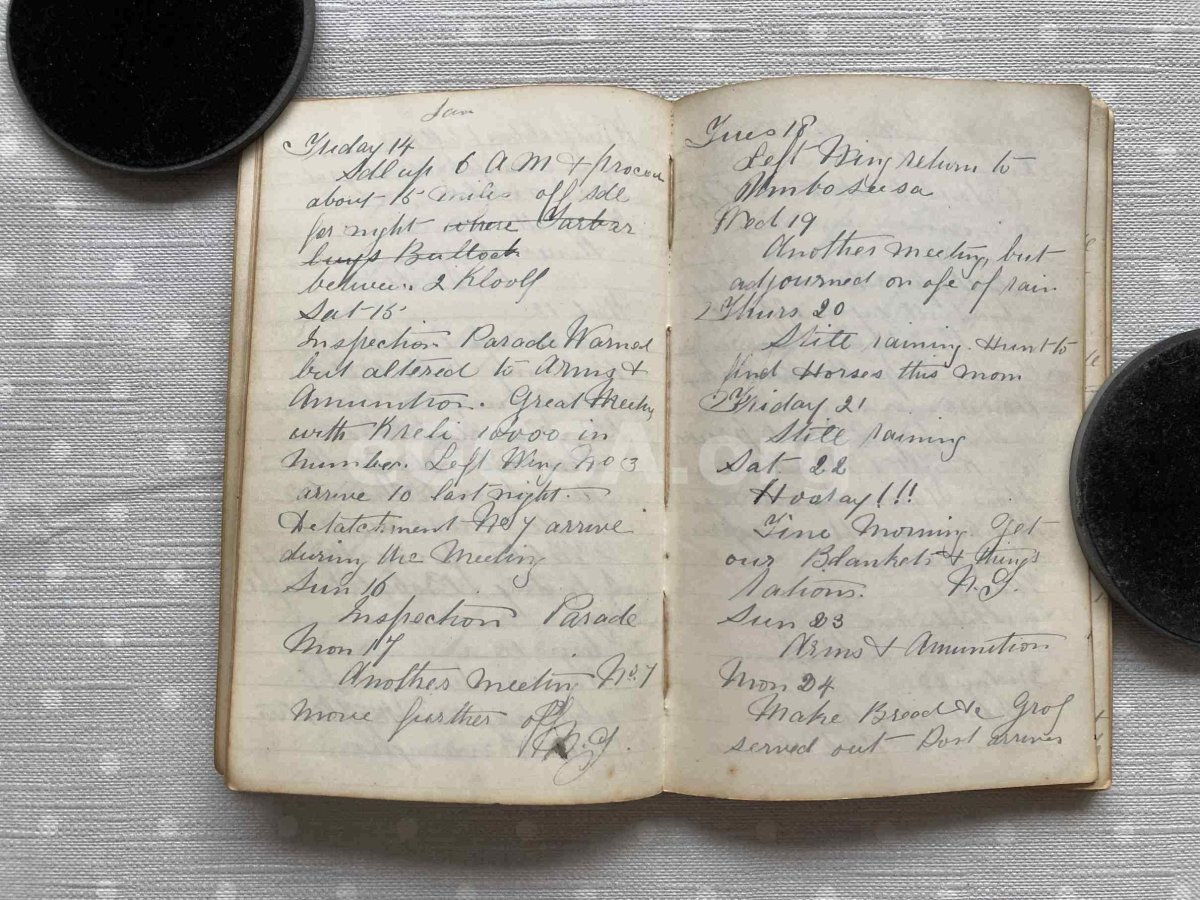 Jan
Friday 14
Sdl up 6 A M & proceed
about 15 miles off sdl
for night where Carbar
buys Bullock
between 2 Kloofs
Sat 15
Inspection Parade Warned
but altered to Arms &
Amunition. Great Meeting
with Kreli 10000 in
number. Left Wing No 3
arrive 10 last night.
Detatchment No 7 arrive
during the Meeting
Sun 16
Inspection Parade
Mon 17
Another meeting No. 7
move further off
N. G.
Tues 18
Left Wing return to
Wed 19
Another meeting, but
adjourned on a/c of rain
Thurs 20
Still raining. Hunt to
find Horses this morn
Friday 21
Still raining
Sat. 22
Hooray!!!
Fine Morning. Get
our Blankets & things
Rations. N. G.
Sun 23
Arms & Amunition
Mon 24
Make Bread &c Grog
served out Post arrives